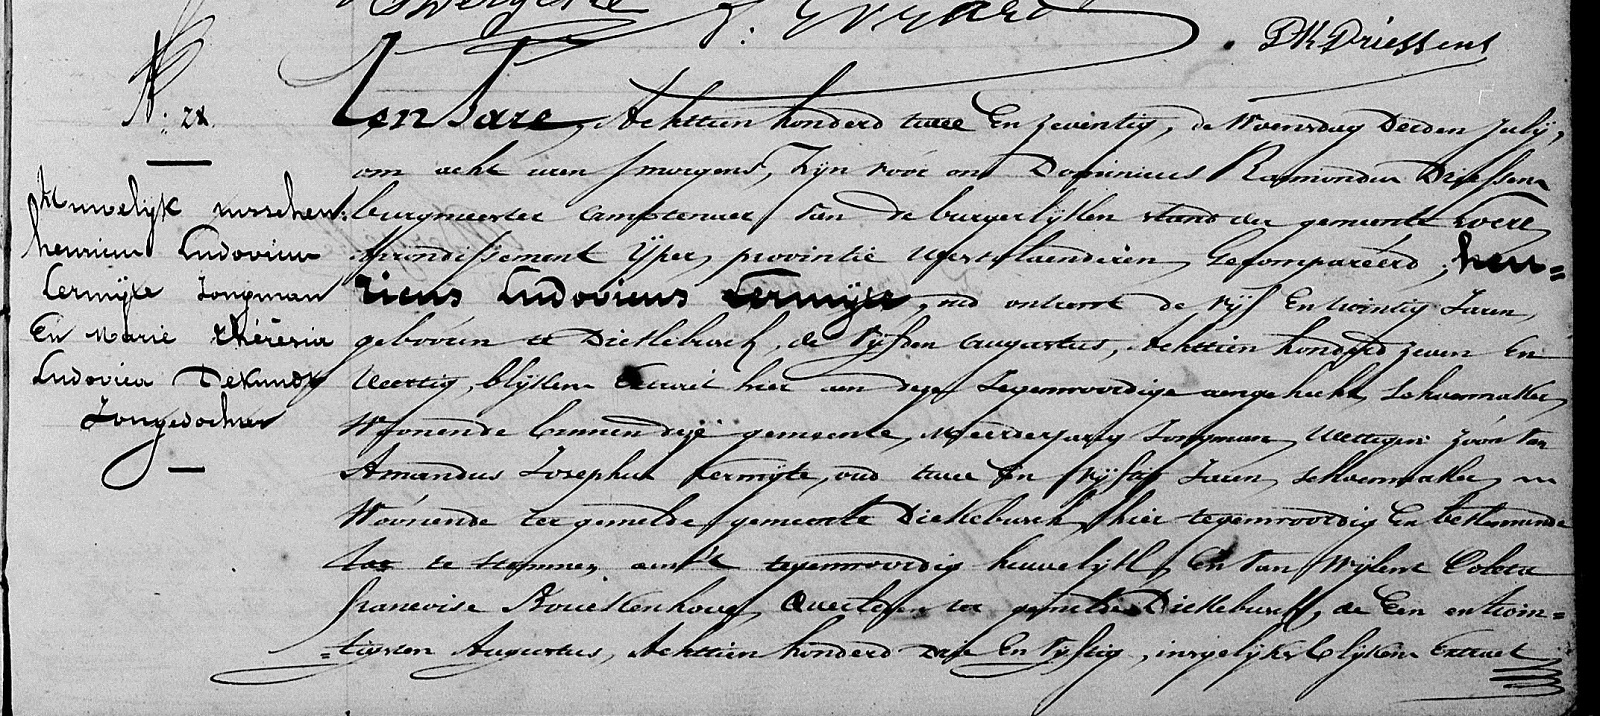 P. Evrard
D R Driessens
N: 28.
Huwelijk tusschen:
henricus Ludovicus
Lermijte Jongman
En Marie thérésia
Ludovica Dekundt
Jongedochter
Ten Jare, Achttien honderd twee En zeventig, de Woensdag Derden July,
om acht uren smorgens, Zijn voór ons Dominicus Raimondus Driessens
burgmeester Amptenaer Van de burgerlijken stand der gemeente Locre
Arrondissement Ijper, provintie Westvlaenderen, Gecompareerd, hen=
ricus Ludovicus Lermijte, oud ontrent de vijf En twintig Jaren,
geboóren te Dickebusch, de Vyfden augustus, Achttien honderd zeven En
Veertig, blykens Extract hier aen deze Tegenwoordige aengehecht, schoenmaker,
Woonende binnen deze gemeente, Meerderjarig Jongman, Wettigen Zoón Van
Amandus Josephus Lermijte, oud twee En Vijftig Jaren, schoenmaker,
Woónende ter gemelde gemeente Dickebusch, hier tegenwoordig En bestemmende
toe te stemmen aen't tegenwoordig huwelijk, En Van Wylent Coleta
francoise Bouckenhove, Overleden ter gemelde Dickebusch, de Een en twin=
=tigsten Augustus, Achttien honderd Drie En Vyftig, insgelijks blijkens Extract